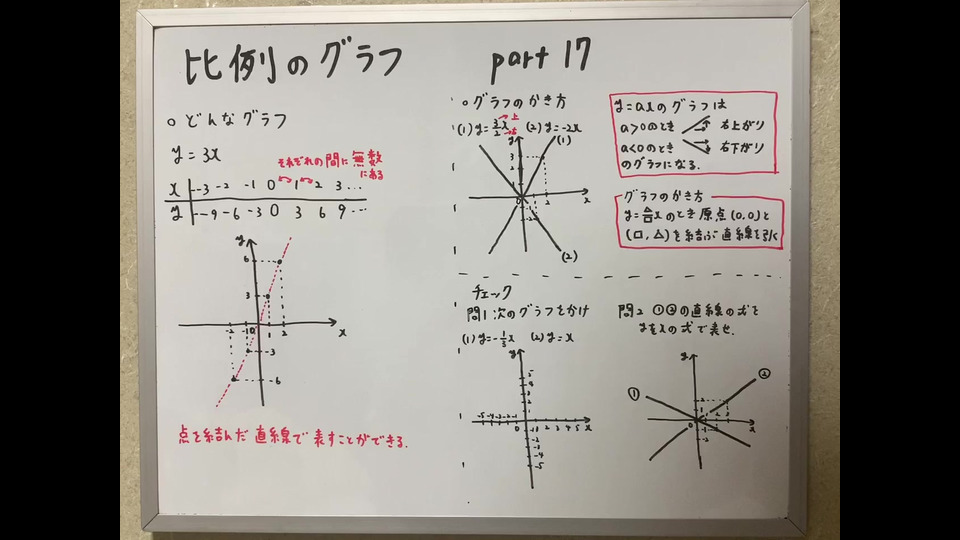 比例のグラフ part 17
○どんなグラフ
y=3x
それぞれの間に無数にある
x | … -3 -2 -1 0 1 2 3 …
y | … -9 -6 -3 0 3 6 9 …
y
6
3
-2 -1 0 1 2 x
-3
-6
点を結んだ直線で表すことができる.
○グラフのかき方
(1) y=3/2x →上 →右 (2) y=-2x
y (1)
3
2
1
0 2 x
-2
(2)
y=axのグラフは
a>0のとき 右上がり
a<0のとき 右下がり
のグラフになる.
グラフのかき方
y=△/□xのとき原点(0,0)と
(□,△)を結ぶ直線を引く
チェック
問1 次のグラフをかけ
(1) y=-1/3x (2) y=x
y
5
4
3
2
1
-5 -4 -3 -2 -1 0 1 2 3 4 5 x
-2
-3
-4
-5
問2 ①②の直線の式を
yをxの式で表せ.
y
① ②
2
1
0 1 2 3 x
-1
-2